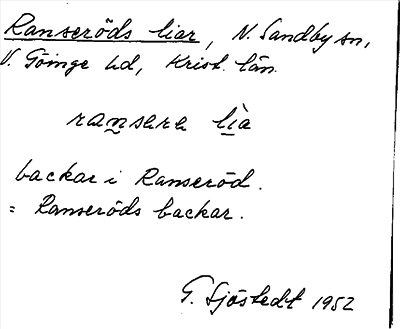 Ranseröds liar, N. Sandby sn,
V. Göinge hd, Krist. län.
ransara lìa
backar i Ranseröd.
= Ranseröds backar.
G. Sjöstedt 1952